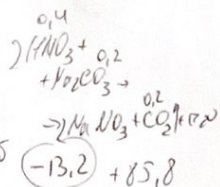 0,4
2HNO3 +
0,2
+Na2CO3 →
0,2
→2NaNO3+CO2↑+H2O
-13,2 +85,8